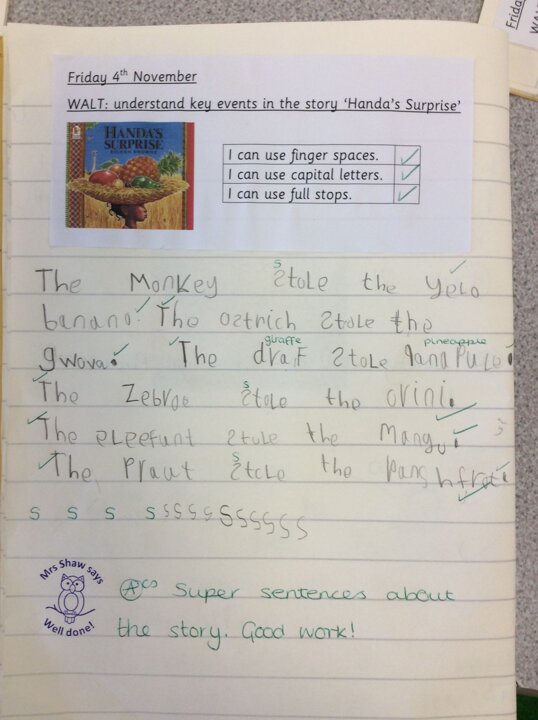 Friday 4th November
WALT: understand key events in the story 'Handa's Surprise'
HANDA'S
SURPRISE
EILEEN BROWNE
I can use finger spaces. ✓
I can use capital letters. ✓
I can use full stops. ✓
s
The Monkey Stole the yelo
banana. The ostrich Stole the
giraffe pineapple
gwova. The draf Stole
s
The Zebroe Stole the orini.
The eleefunt Stole the Mangu.
s
The Praut Stole the
s s s s s s s s s s s s s s
Mrs Shaw says
Well done!
Super sentences about
the story. Good work!